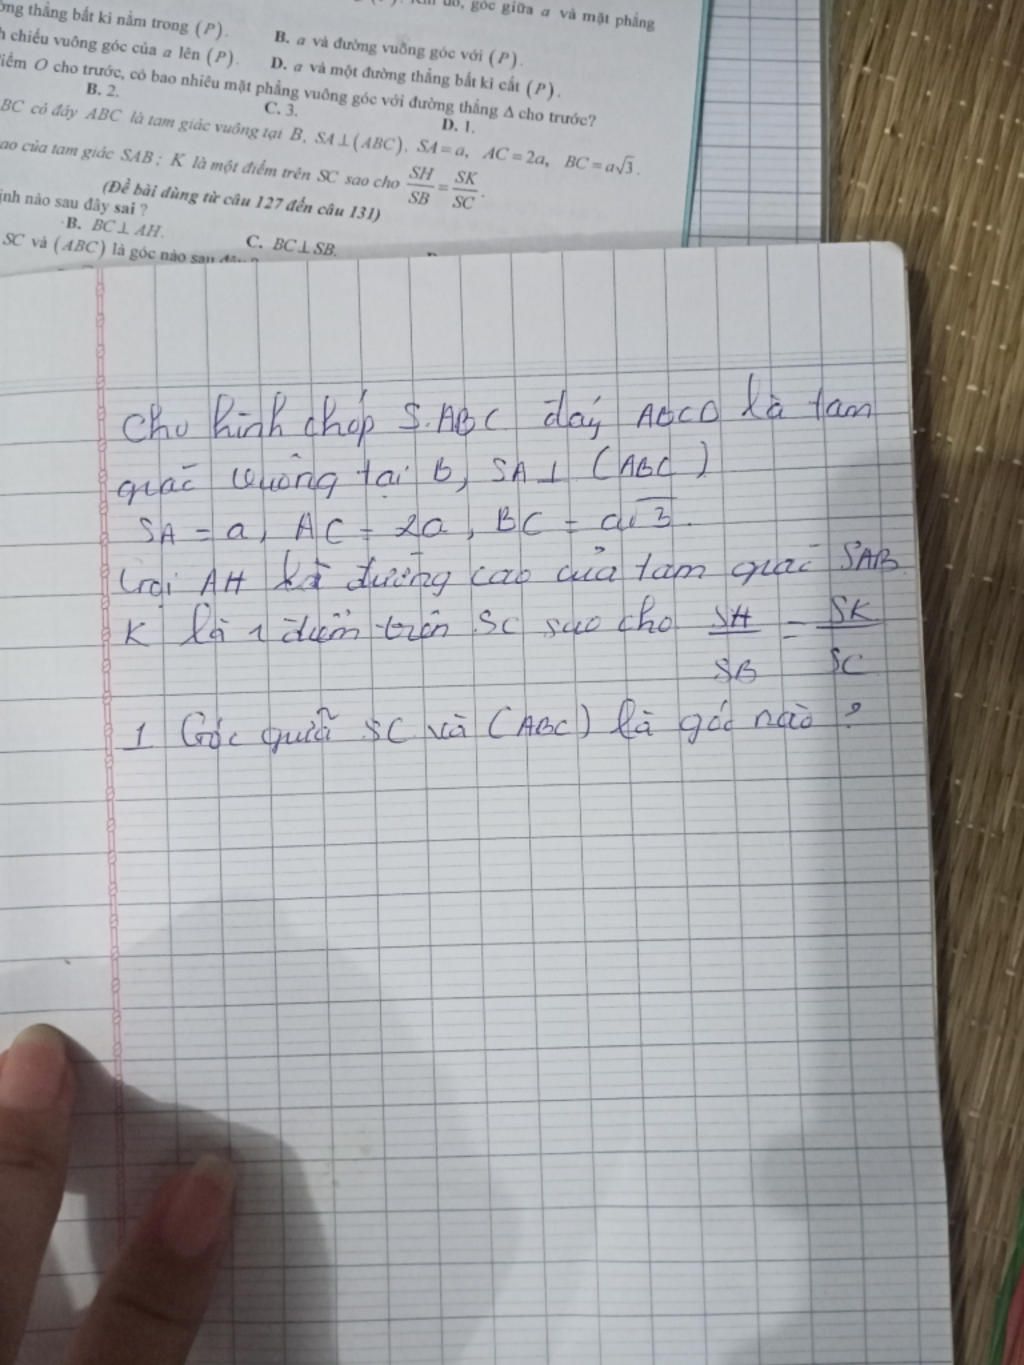 ong thẳng bất kì nằm trong (P).
góc giữa a và mặt phẳng
B. a và đường vuông góc với (P).
h chiếu vuông góc của a lên (P).
D. a và một đường thẳng bất kì cắt (P).
iểm O cho trước, có bao nhiêu mặt phẳng vuông góc với đường thẳng Δ cho trước?
B. 2. C. 3. D. 1.
BC có đáy ABC là tam giác vuông tại B, SA⊥(ABC), SA=a, AC=2a, BC=a√3.
ao của tam giác SAB; K là một điểm trên SC sao cho SH/SB = SK/SC.
(Đề bài dùng từ câu 127 đến câu 131)
ịnh nào sau đây sai ?
B. BC⊥AH. C. BC⊥SB.
SC và (ABC) là góc nào sau
Cho hình chóp S.ABC đáy ABCD là tam
giác vuông tại B, SA⊥ (ABC)
SA = a, AC = 2a, BC = a√3.
Gọi AH là đường cao của tam giác SAB
K là 1 điểm trên SC sao cho SH/SB = SK/SC
1 Góc giữa SC và (ABC) là góc nào ?